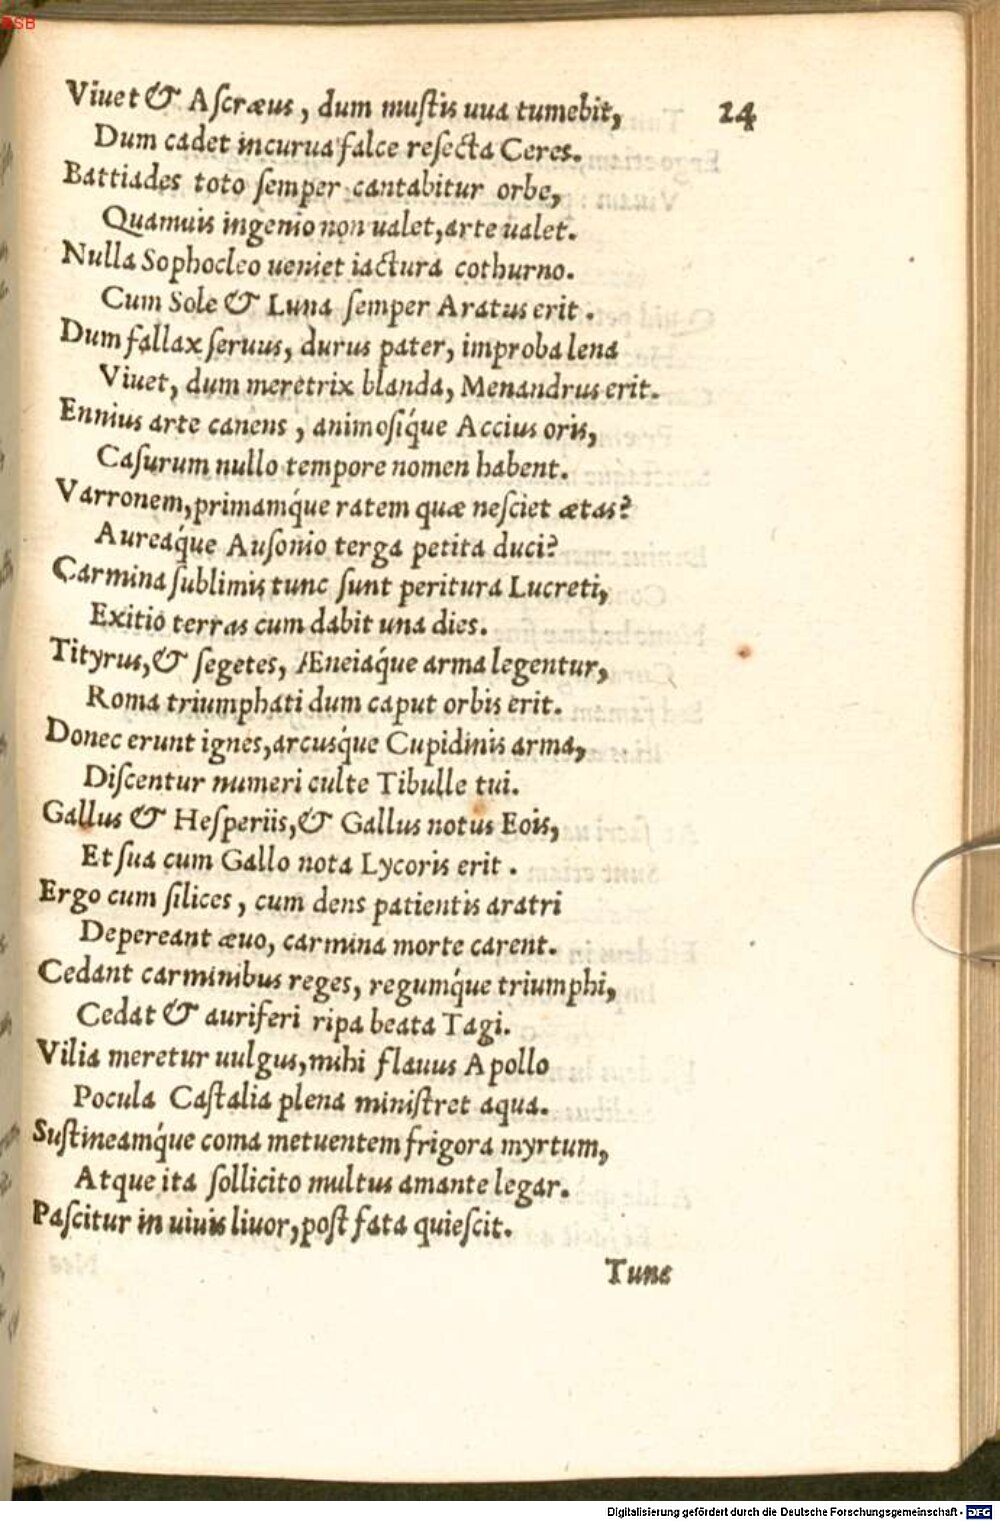 BSB
Viuet & Aſcræus, dum muſtis uua tumebit, 24
Dum cadet incurua falce reſecta Ceres.
Battiades toto ſemper cantabitur orbe,
Quamuis ingenio non ualet, arte ualet.
Nulla Sophocleo ueniet iactura cothurno.
Cum Sole & Luna ſemper Aratus erit.
Dum fallax ſeruus, durus pater, improba lena
Viuet, dum meretrix blanda, Menandrus erit.
Ennius arte canens, animosíque Accius oris,
Caſurum nullo tempore nomen habent.
Varronem, primamq́ue ratem quæ neſciet ætas?
Aureaq́ue Auſonio terga petita duci?
Carmina ſublimis tunc ſunt peritura Lucreti,
Exitio terras cum dabit una dies.
Tityrus, & ſegetes, Æneiaq́ue arma legentur,
Roma triumphati dum caput orbis erit.
Donec erunt ignes, arcusq́ue Cupidinis arma,
Diſcentur numeri culte Tibulle tui.
Gallus & Heſperiis, & Gallus notus Eois,
Et ſua cum Gallo nota Lycoris erit.
Ergo cum ſilices, cum dens patientis aratri
Depereant æuo, carmina morte carent.
Cedant carminibus reges, regumq́ue triumphi,
Cedat & auriferi ripa beata Tagi.
Vilia meretur uulgus, mihi flauus Apollo
Pocula Caſtalia plena miniſtret aqua.
Suſtineamq́ue coma metuentem frigora myrtum,
Atque ita ſollicito multus amante legar.
Paſcitur in uiuis liuor, poſt fata quieſcit.
Tunc
Digitalisierung gefördert durch die Deutsche Forschungsgemeinschaft - DFG